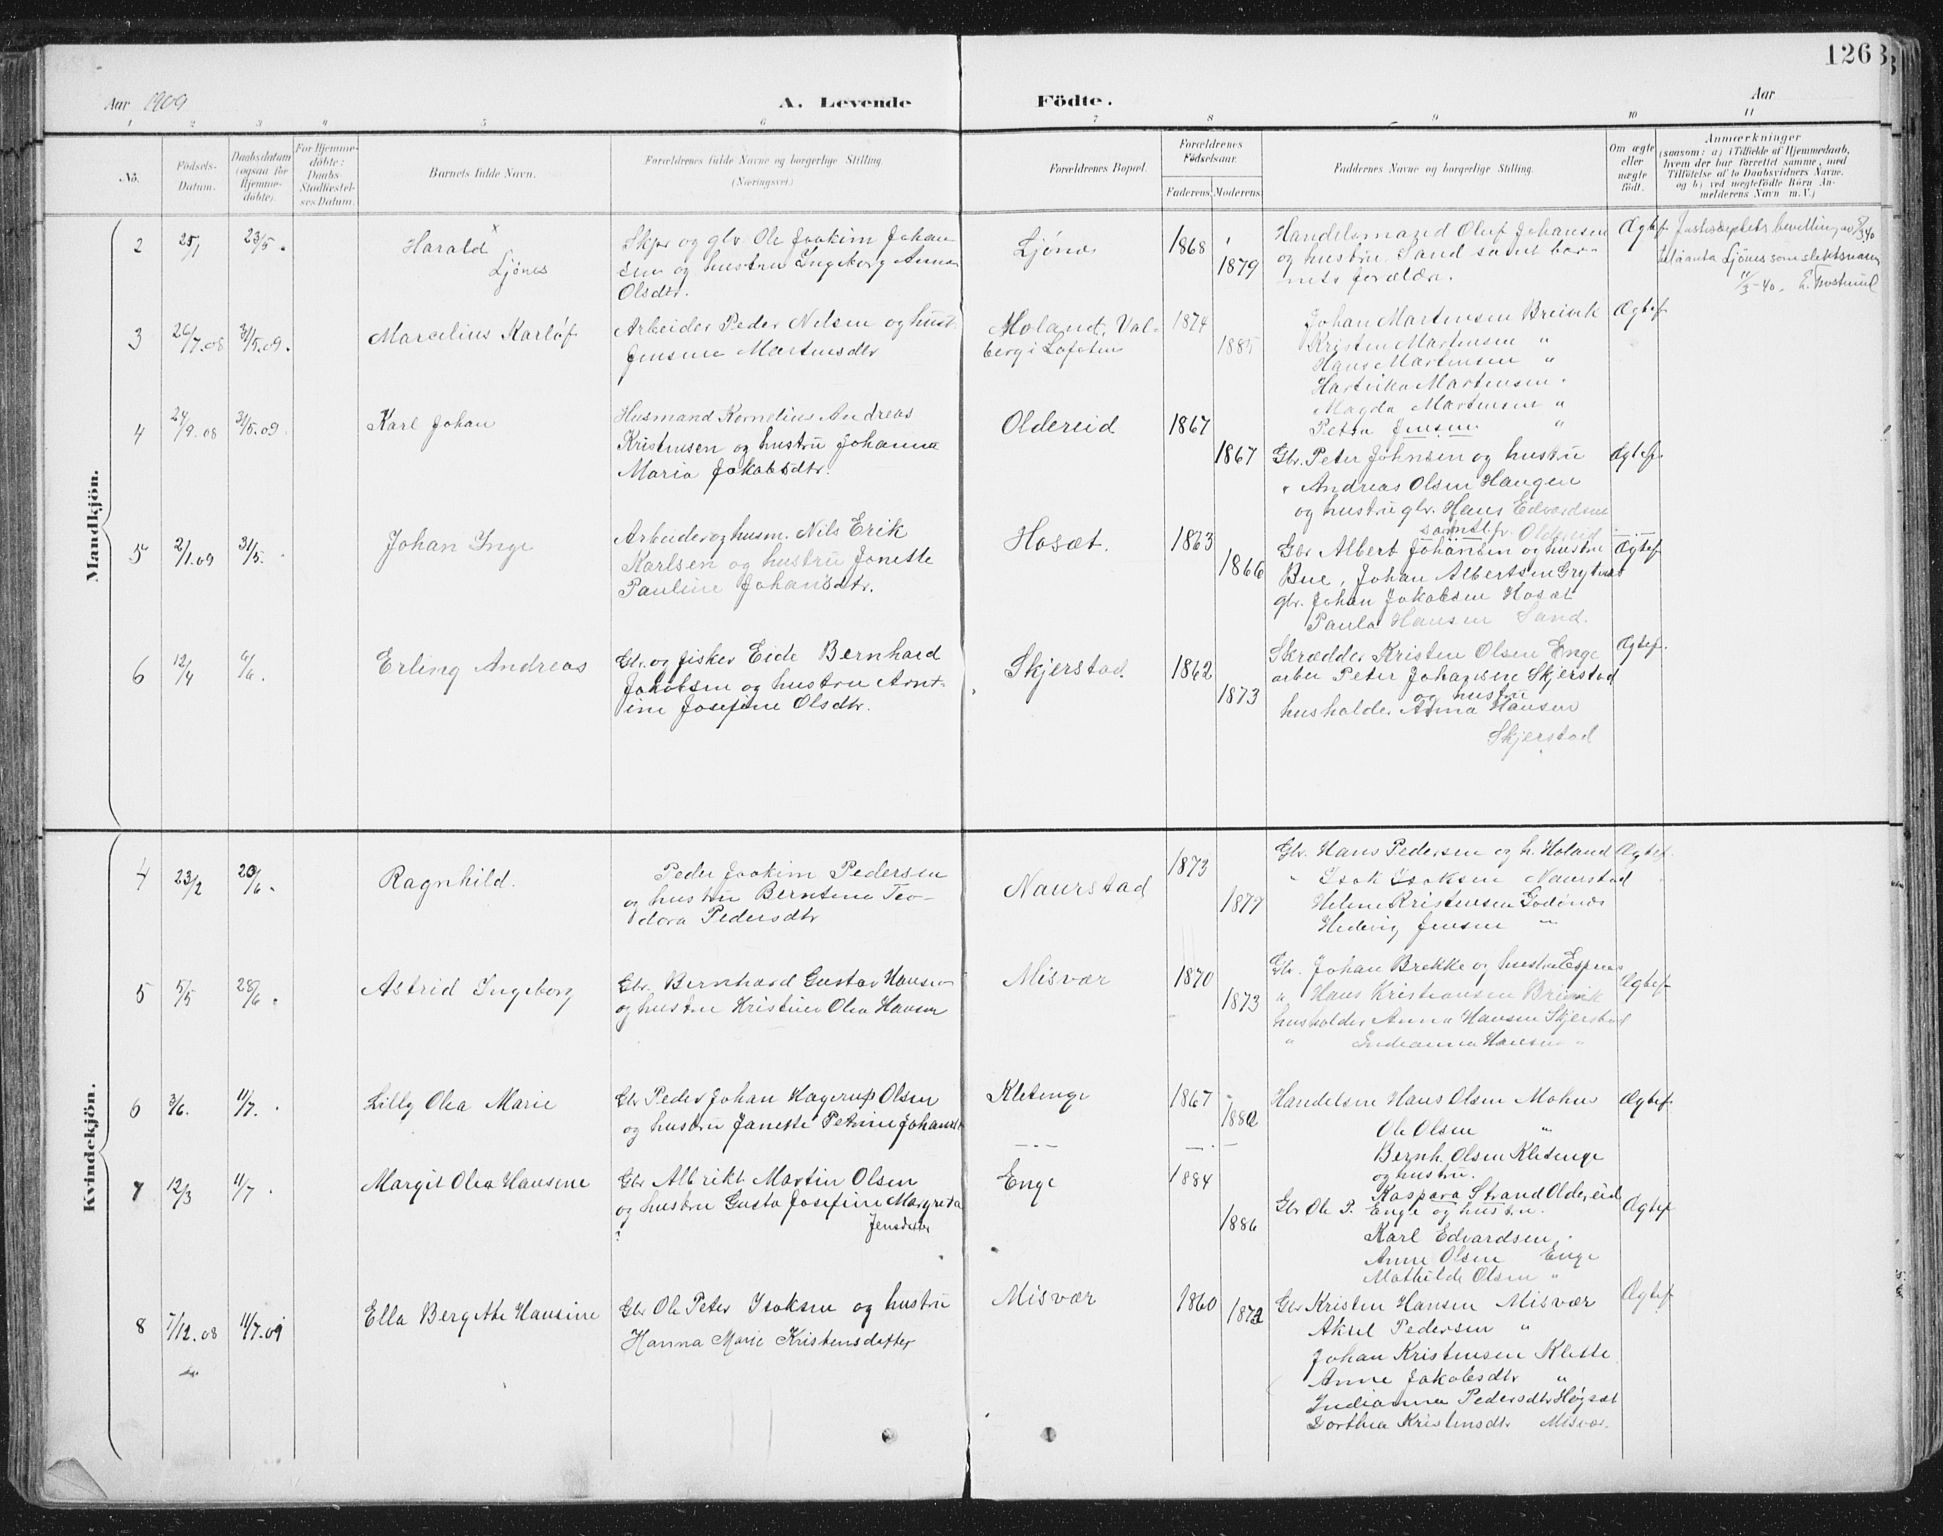 126
Aar 1909
A. Levende Födte.
Aar
1 2 3 4 5 6 7 8 9 10 11
No.
Födsels-Datum.
Daabsdatum (ogsaa for Hjemme-döbte).
For Hjemme-döbte: Daabs-Stadfæstel-ses Datum.
Barnets fulde Navn.
Forældrenes fulde Navne og borgerlige Stilling. (Næringsvei)
Forældrenes Bopæl.
Forældrenes Födselsaar.
Faderens Moderens
Faddernes Navne og borgerlige Stilling.
Om ægte eller uægte födt.
Anmærkninger
(saasom: a) i Tilfælde af Hjemmedaab,
hvem der har forrettet samme, med
Tilföielse af to Daabsvidners Navne.
og b) ved uægtefödte Börn An-
melderens Navn m. V.)
Mandkjön.
2 25/1 23/5.
Harald x
Ljönes
Skpr og gbr. Ole Joakim Johan
sen og hustru Ingeborg Anna
Olsdtr.
Ljönes
1868
1879
Handelsmand Oluf Johansen
og hustru, Sand samt bar-
nets forældre.
Ægtef.
Justisdeptets bevilling av 8/3 40
til å anta Ljönes som slektsnavn
11/3-40.
3 26/7.08 31/5.09.
Marcelius Karlöf
Arbeider Peder Nilsen og hust.
Jensine Martinsdtr
Moland, Val-
berg i Lofoten
1874
1885
Johan Martensen Breivik
Kristen Martensen "
Hans Martensen "
Hartvika Martensen "
Magda Martensen "
Petra Jensen "
Ægtef
4 24/9.08 31/5.09.
Karl Johan
Husmand Kornelius Andreas
Kristensen og hustru Johanna
Maria Jakobsdtr.
Oldereid
1867
1867
Gbr. Peter Johnsen og hustru
" Andreas Olsen Haugen
og hustru gbr. Hans Edvardsen
samtl. fr. Oldereid
Ægtef
5 2/1.09 31/5.
Johan Inge
Arbeider og husm. Nils Erik
Karlsen og hustru Jonette
Pauline Johansdtr.
Hosæt.
1863
1866
Gbr Albert Johansen og hustru
Bue, Johan Albertsen Grytnes
gbr. Johan Jakobsen Hosæt
Paula Hansen Sand.
Ægtef
6 12/4 6/6.
Erling Andreas
Gbr. og fisker Eide Bernhard
Jakobsen og hustru Arnt-
ine Josefine Olsdtr.
Skjerstad
1862
1873
Skrædder Kristen Olsen Enge
arbei Peter Johansen Skjerstad
og hustru
husholder Anna Hansen
Skjerstad
Ægtef.
Kvindekjön.
4 23/2 20/6.
Ragnhild.
Peder Joakim Pedersen
og hustru Berntine Teo-
dora Pedersdtr
Naurstad
1873
1879
Gbr. Hans Pedersen og h. Holand
" Isak Isaksen Naurstad
Helene Kristensen Godönes
Hedvig Jensen "
Ægtef.
5 5/5 28/6.
Astrid Ingeborg
Gbr. Bernhard Gustav Hansen
og hustru Kristine Olea Hansen
Misvær
1870
1873
Gbr. Johan Brekke og hustru Espnes
" Hans Kristiansen Breivik
husholder Anna Hansen Skjerstad
" Indianna Hansen "
Ægtef.
6 3/6. 11/7.
Lilly Olea Marie
Gbr Peder Johan Hagerup Olsen
og hustru Janette Petrine Johansdtr
Kletenge
1867
1880
Handelsm Hans Olsen Mohus
Ole Olsen "
Bernh. Olsen Kletenge
og hustru.
Kaspara Strand Oldereid
Ægtef.
7 12/3 11/7.
Margit Olea Hansine
Gbr Albrikt Martin Olsen
og hustru Gusta Josefine Margreta
Jensdatter
Enge
1884
1886
Gbr Ole P. Enge og hustru.
Karl Edvardsen
Anne Olsen Enge
Mathilde Olsen "
Ægtef
8 7/12.08 11/7.09
Ella Bergitte Hansine
Gbr Ole Peter Isaksen og hustru
Hanna Marie Kristensdatter
Misvær
1860
1872
Gbr Kristen Hansen Misvær
Aksel Pedersen "
Johan Kristensen Klette
Anne Jakobsdtr "
Indianna Pedersdtr Høgset
Dorthea Kristensdtr Misvær.
Ægtef